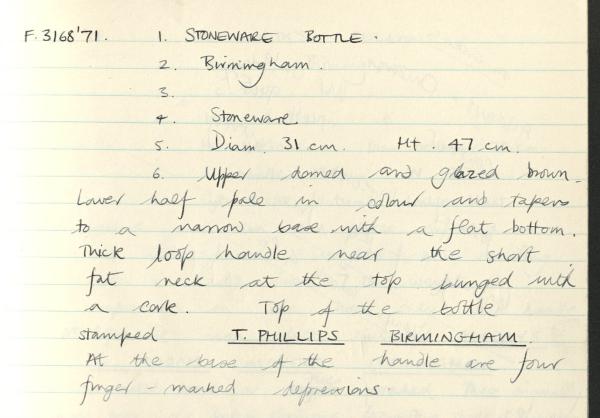 F.3168'71. 1. STONEWARE BOTTLE.
2. Birmingham.
3.
4. Stoneware
5. Diam. 31 cm. Ht. 47 cm.
6. Upper domed and glazed brown.
Lower half pale in colour and tapers
to a narrow base with a flat bottom.
Thick loop handle near the short
fat neck at the top bunged with
a cork. Top of the bottle
stamped T. PHILLIPS BIRMINGHAM.
At the base of the handle are four
finger-marked depressions.